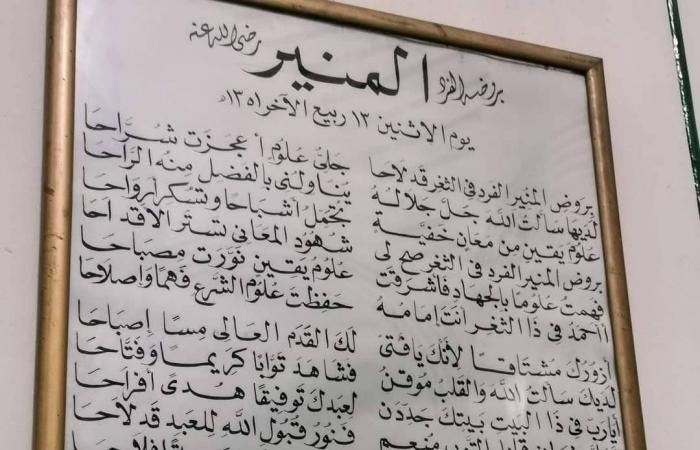 بروضة الفرد المنير رضى الله عنه
يوم الاثنين ١٣ ربيع الآخر
بروض المنير الفرد في الثغر قد لاحا جلى علوم أعجزت شراحا
لديها سألت الله جل جلاله يناولني بالفضل منه الراحا
علوم يقين من معان خفية بتجمل أشباحا وتسكر أرواحا
بروض المنير الفرد في الثغر صح لى شهود المعاني تستر الأقداحا
فهمت علوما بالجهاد فأشرقت علوم يقين نورت مصباحا
أأحمد في ذا الثغر أنت إمامه حفظت علوم الشرع فهما وإصلاحا
أزورك مشتاقا لأنك يافتى لك القدم العالى مسا إصباحا
لديك سألت الله والقلب موقن فشاهد توابا كريما وفتاحا
أيارب في ذا البيت بيتك جددن لعبدك توفيقا هدى أفراحا
منعم فنور قبول الله للعبد قد لاحا